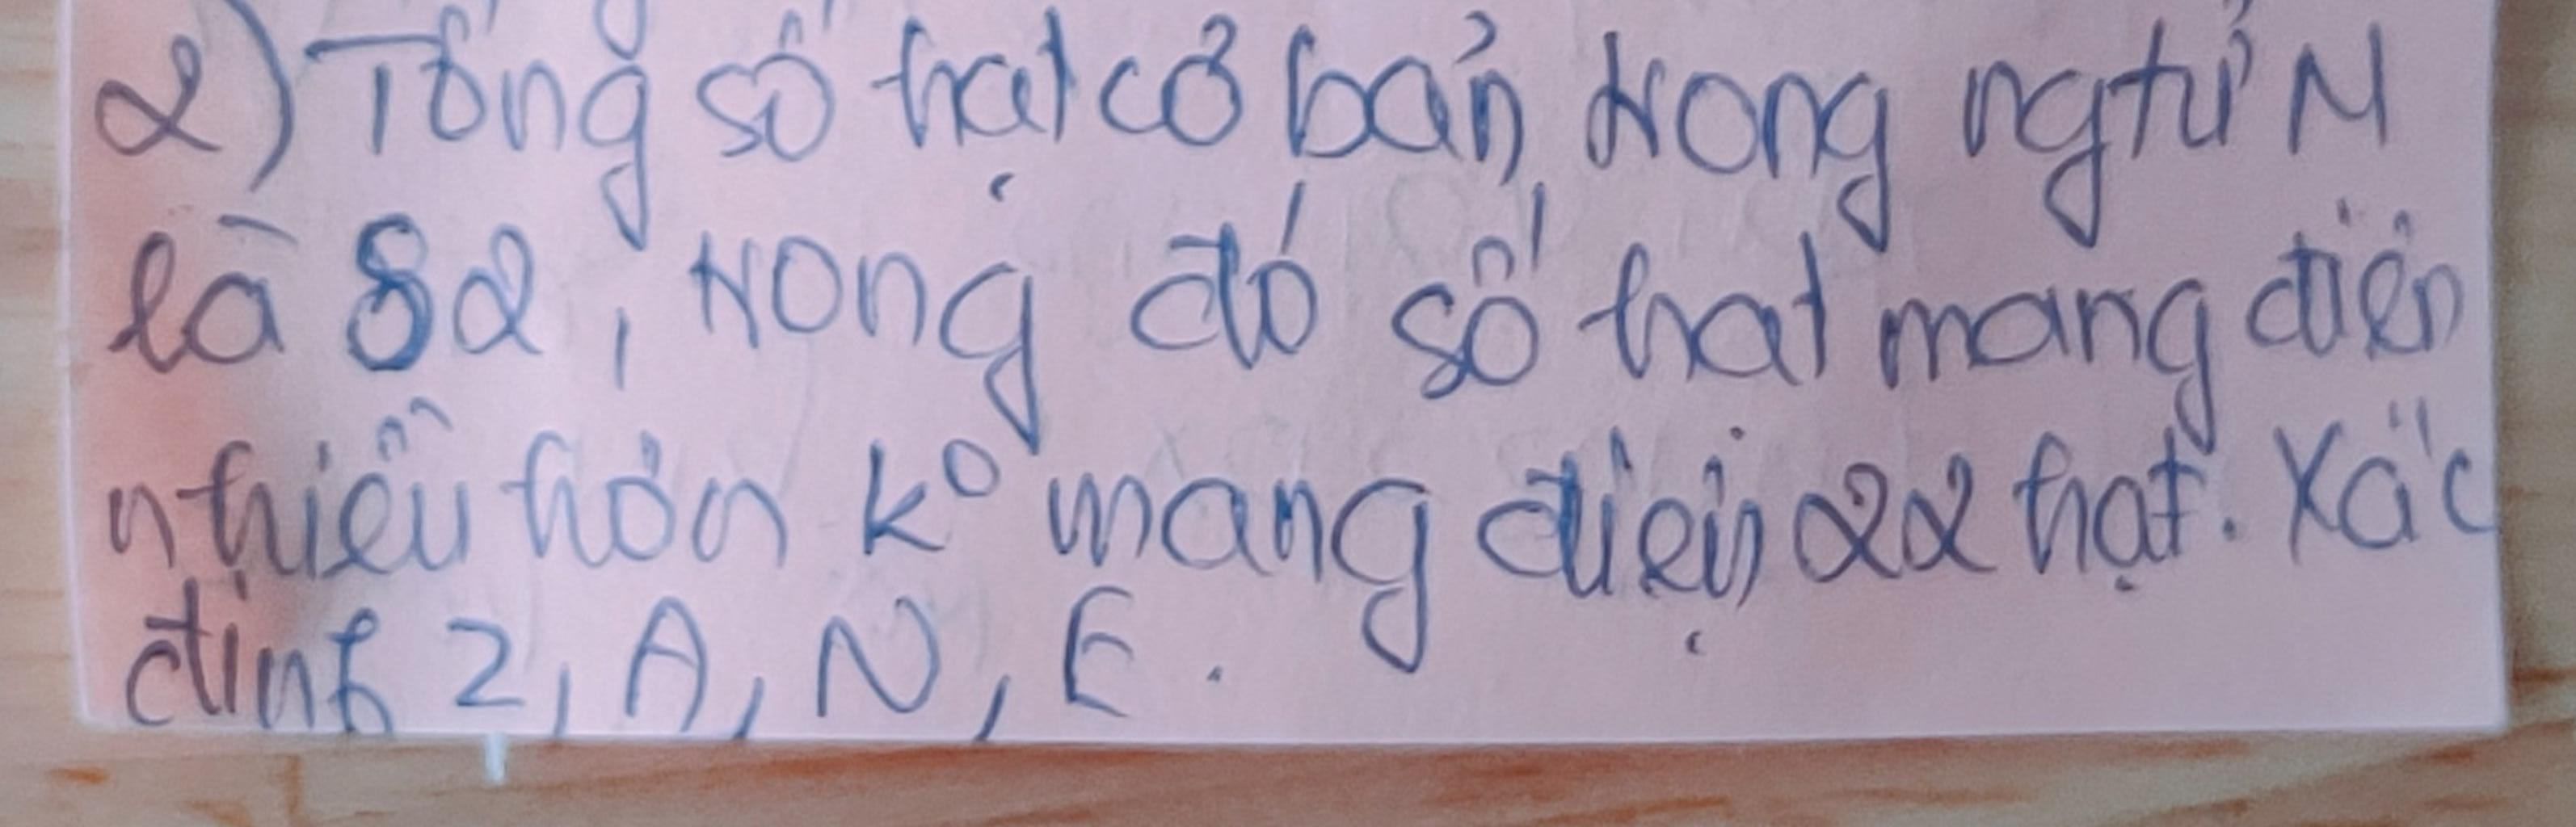 2) Tổng số hạt cơ bản trong ngtử M
là 82, trong đó số hạt mang điện
nhiều hơn k⁰ mang điện 22 hạt. Xác
định Z, A, N, E.